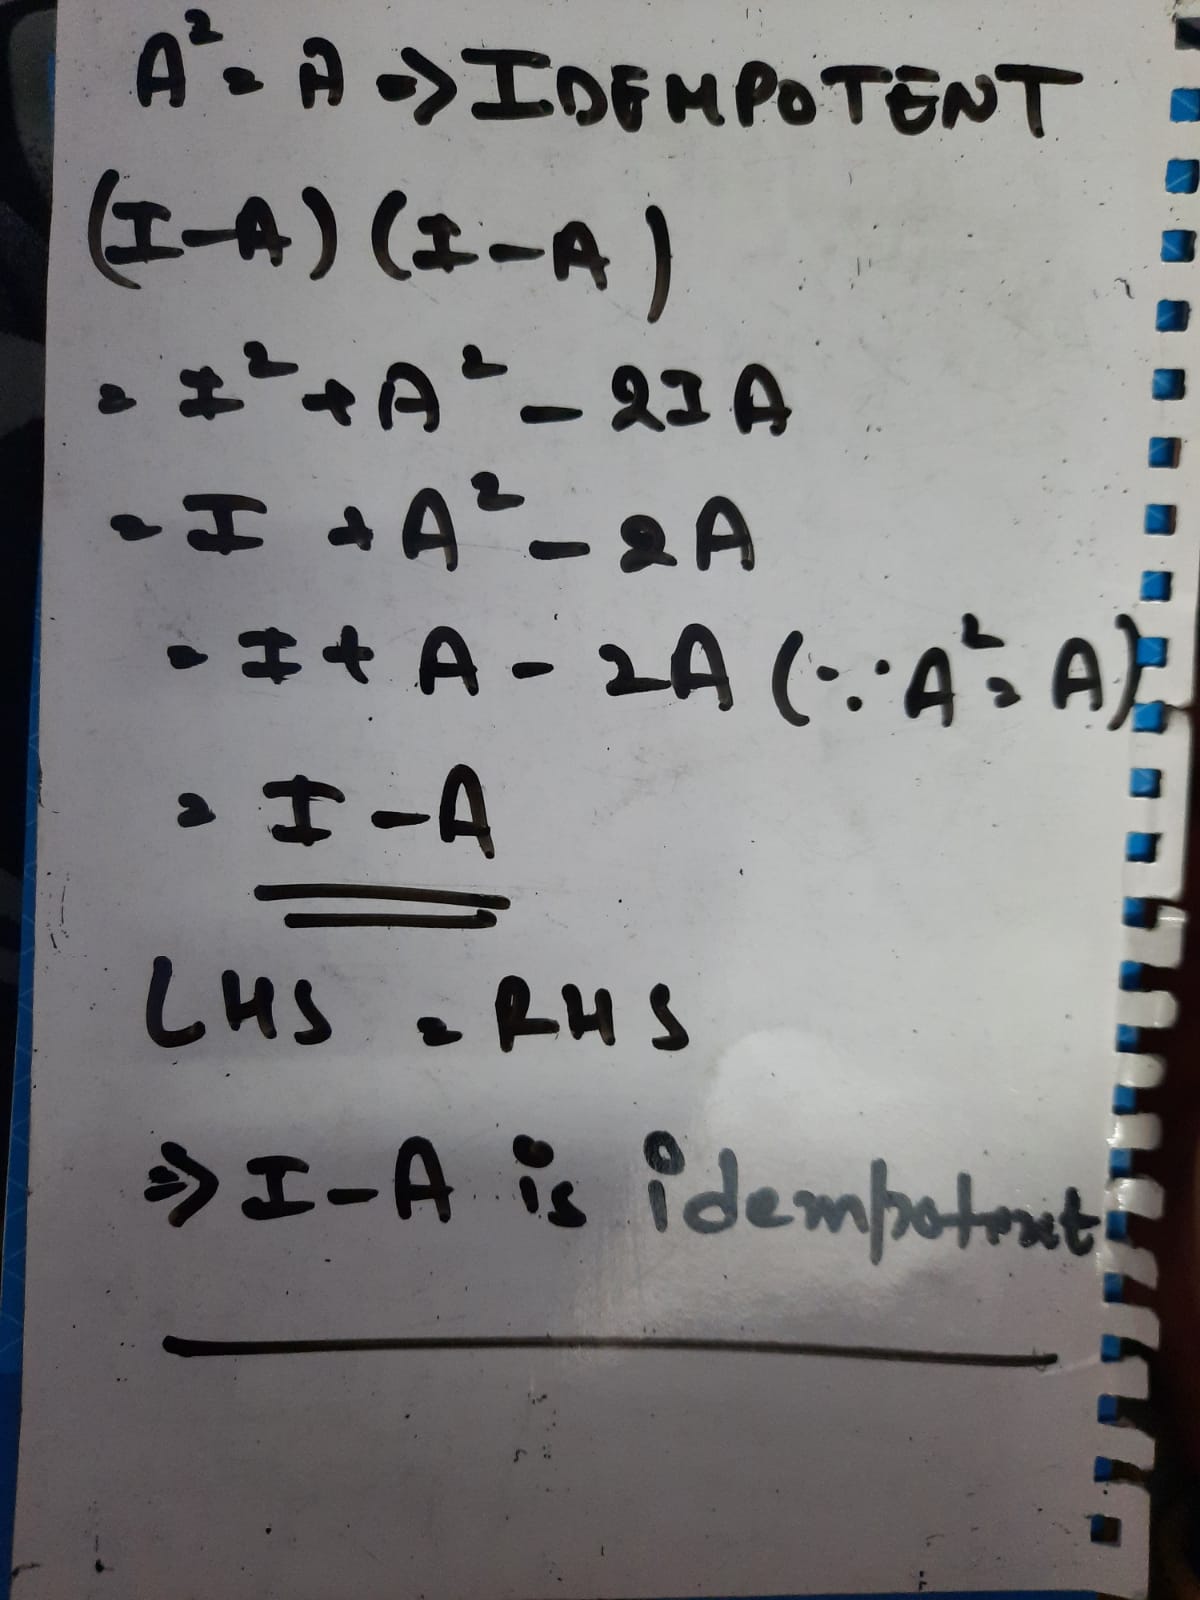 A² = A => IDEMPOTENT
(I-A) (I-A)
= I² + A² - 2IA
= I + A² - 2A
= I + A - 2A (∵ A² = A)
= I - A
LHS = RHS
=> I - A is idempotent